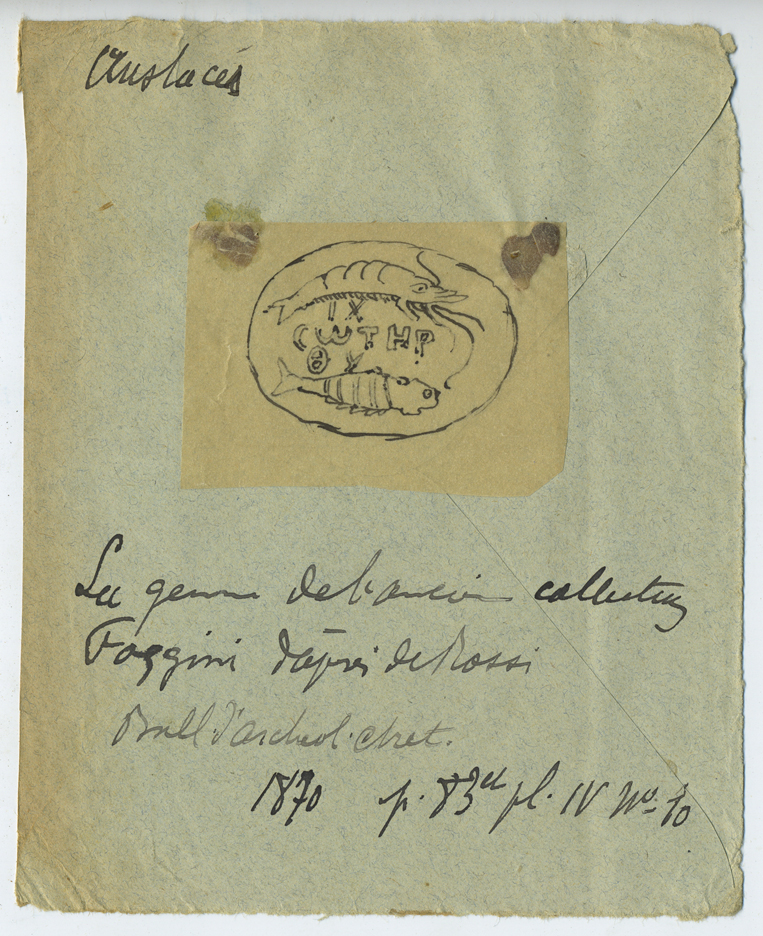 Crustacés
IX
CWTHP
Θ Y
La gemme de l'ancien collection
Foggini d'après de Rossi
Bull. d'archeol. chret.
1870 p. 83 et pl. IV No. 10